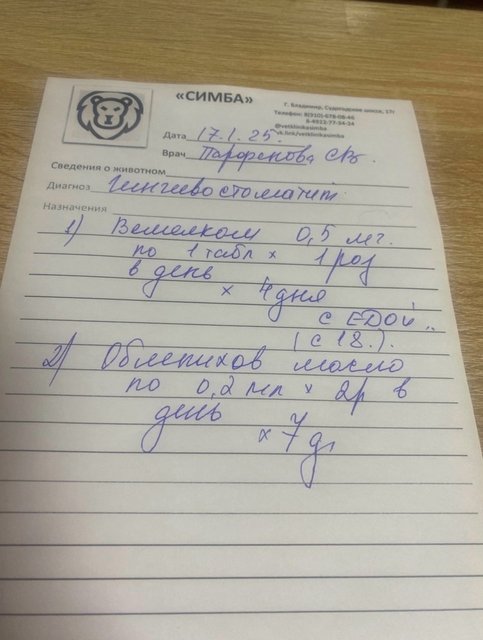 «СИМБА»
Г. Владимир, Судогодское шоссе, 17г
Телефон: 8(910)-678-08-46
8-4922-77-34-24
@vetklinikasimba
vk.link/vetklinikasimba
Дата 17.1.25.
Врач Парфенова СВ.
Сведения о животном
Диагноз Гингивостоматит
Назначения
1) Вемелкам 0,5 мг.
по 1 табл × 1 раз
в день
× 4 дня
с ЕДОЙ..
(с 18.).
2) Облепихов масло
по 0,2 мл × 2р в
день
× 7 д